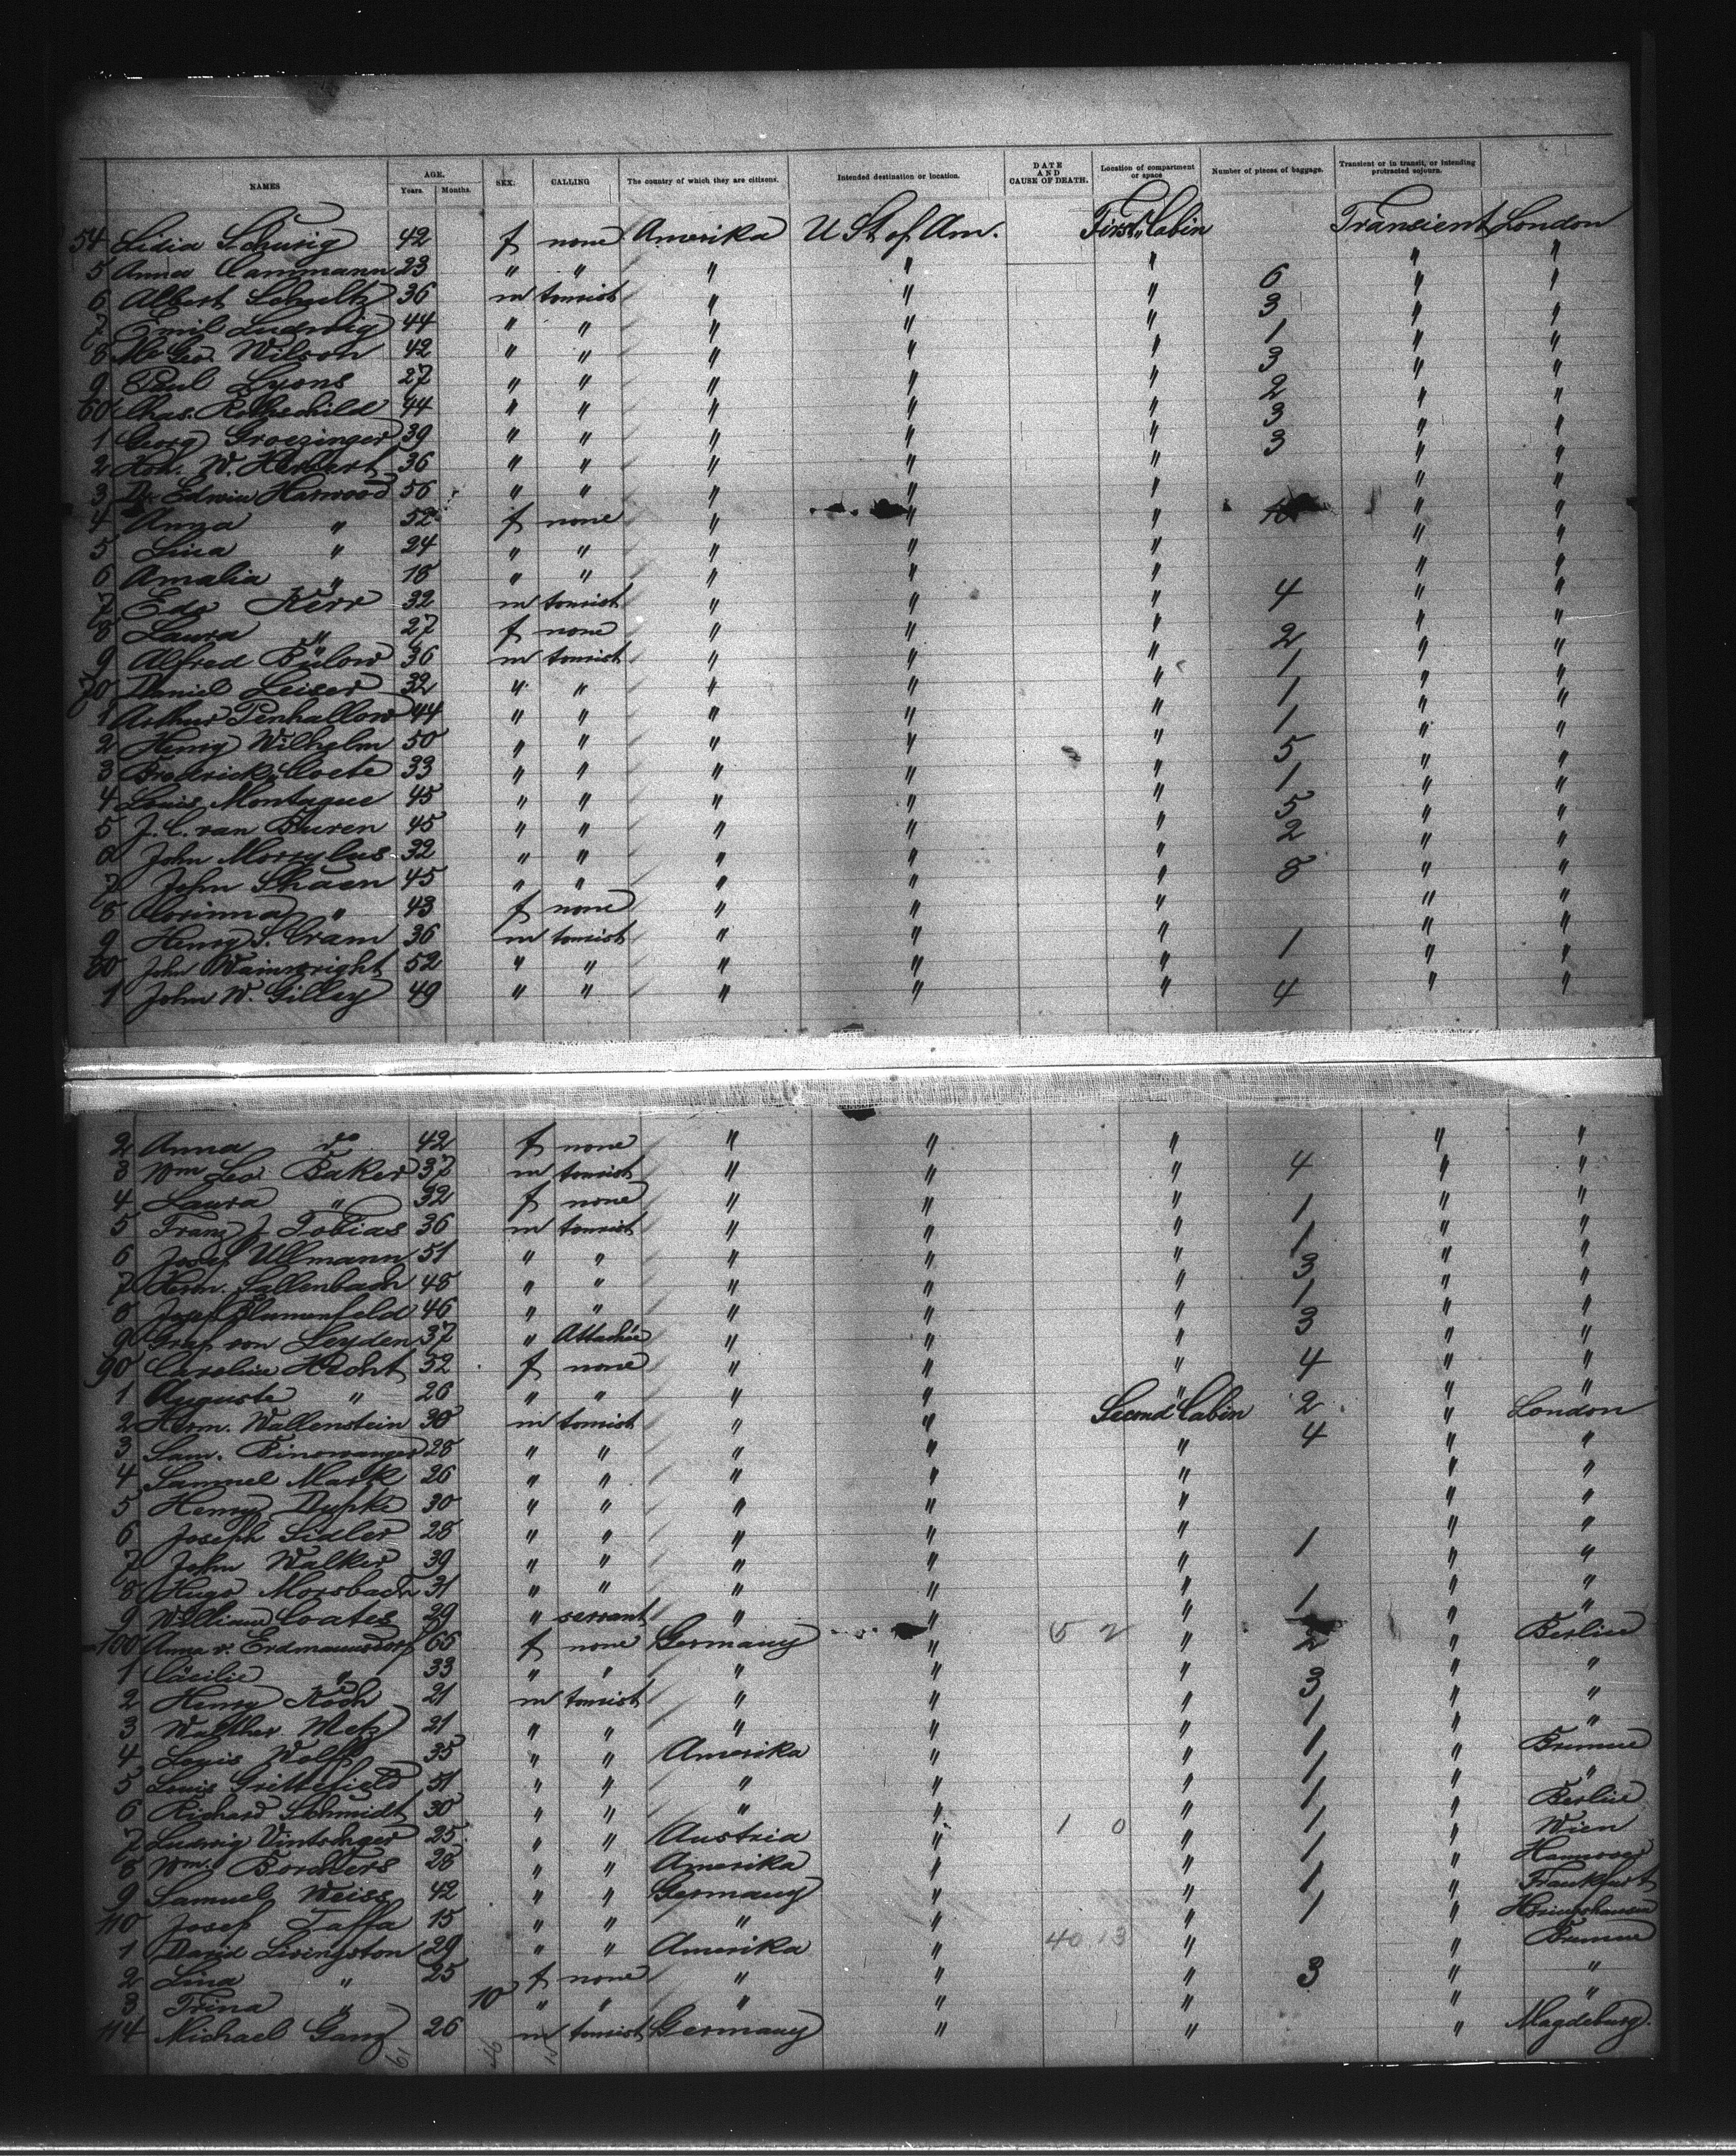 NAMES AGE. Years. Months. SEX. CALLING The country of which they are citizens. Intended destination or location. DATE AND CAUSE OF DEATH. Location of compartment or space Number of pieces of baggage. Transient or in transit, or intending protracted sojourn.
54 Lidia Schurig 42 f none Amerika U St. of Am. First Cabin Transient London
5 Anna Cammann 23 " " " " " 6 " "
6 Albert Schultz 36 m tourist " " " 3 " "
7 Emil Ludwig 44 " " " " " 1 " "
8 Mr Geo. Wilson 42 " " " " " 3 " "
9 Paul Lyons 27 " " " " " 2 " "
60 Chas. Rothschild 44 " " " " " 3 " "
1 Georg Groezinger 39 " " " " " 3 " "
2 Hon. W. Herbert 36 " " " " " " "
3 Dr. Edwin Harwood 56 " " " " " " "
4 Anna " 52 f none " " " " "
5 Lina " 24 " " " " " " "
6 Amalia " 18 " " " " " " "
7 Edo Kerr 32 m tourist " " " 4 " "
8 Laura " 27 f none " " " 2 " "
9 Alfred Bülow 36 m tourist " " " 1 " "
70 Daniel Leiser 32 " " " " " 1 " "
1 Arthur Penhallow 44 " " " " " 1 " "
2 Henry Wilhelm 50 " " " " " 5 " "
3 Brodrick Cloete 33 " " " " " 1 " "
4 Louis Montague 45 " " " " " 5 " "
5 J. C. van Buren 45 " " " " " 2 " "
6 John 32 " " " " " 8 " "
7 John Shaen 45 " " " " " " "
8 Corinna " 43 f none " " " " "
9 Henry S. Cram 36 m tourist " " " 1 " "
80 John Wainwright 52 " " " " " " "
1 John W. Gilley 49 " " " " " 4 " "
2 Anna do 42 f none " " " " "
3 Wm Leo Baker 37 m tourist " " " 4 " "
4 Laura " 32 f none " " " 1 " "
5 Franz J. Tobias 36 m tourist " " " 1 " "
6 Josef Ullmann 51 " " " " " 3 " "
7 Herm. Sallenbach 48 " " " " " 1 " "
8 Josef Blumenfeld 46 " " " " " 3 " "
9 Graf von Leyden 37 " Attachée " " " " "
90 Caroline Hecht 52 f none " " " 4 " "
1 Auguste " 26 " " " " " 2 " "
2 Herm. Wallenstein 30 m tourist " " Second Cabin 4 " London
3 Sam. Binswanger 28 " " " " " " "
4 Samuel Mark 26 " " " " " " "
5 Henry Dypke 30 " " " " " " "
6 Joseph Sidler 28 " " " " " 1 " "
7 John Walker 39 " " " " " " "
8 Hugo Morsbach 31 " " " " " 1 " "
9 William Coates 29 " servant " " " " "
100 Anna v. Erdmannsdorf 65 f none Germany " 5 2 " 2 " Berlin
1 Cäcilie " 33 " " " " " 3 " "
2 Henry Koch 21 m tourist " " " 1 " "
3 Walther Metz 21 " " " " " 1 " "
4 Louis Wolff 35 " " Amerika " " 1 " Bremen
5 Louis Grittefield 51 " " " " " 1 " "
6 Richard Schmidt 30 " " " " " 1 " Berlin
7 Ludwig Vintschger 25 " " Austria " 1 0 " 1 " Wien
8 Wm. Borchers 28 " " Amerika " " 1 " Hannover
9 Samuel Weiss 42 " " Germany " " 1 " Frankfurt
110 Josef Taffa 15 " " " " " "
1 David Livingston 29 " " Amerika " 40 13 " " Bremen
2 Lina " 25 f none " " " 3 " "
3 Trina " 10 " " " " " " "
114 Michael Ganz 26 m tourist Germany " " " Magdeburg.